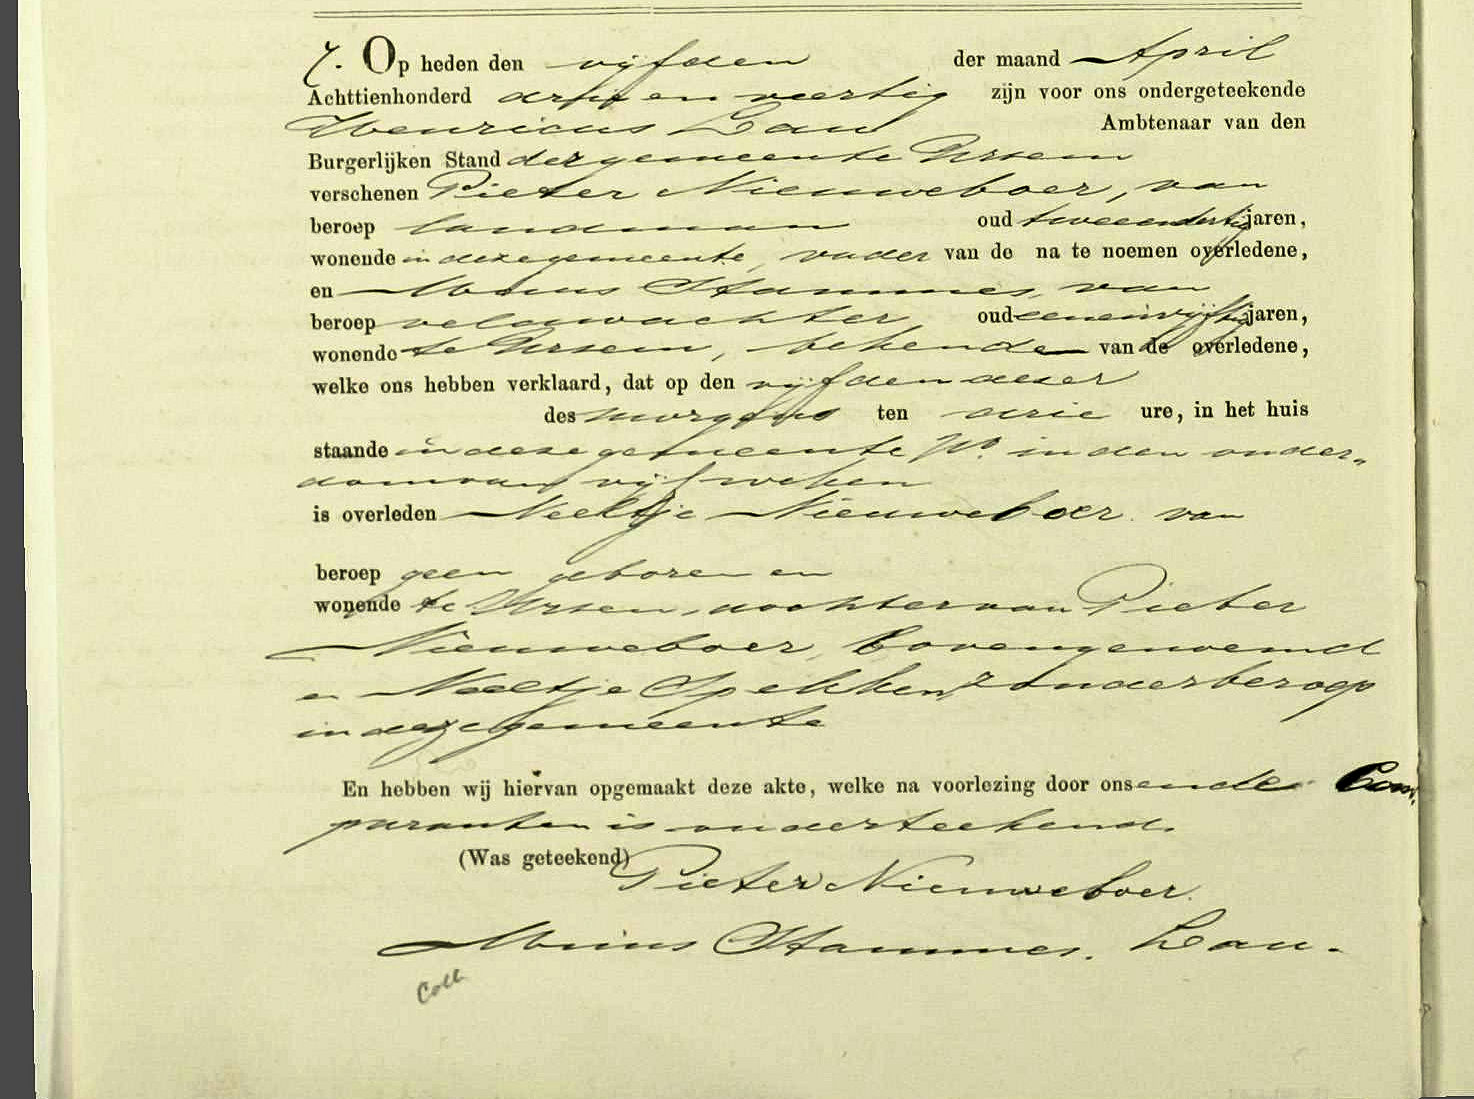 7. Op heden den vijfden der maand April
Achttienhonderd drie en veertig zijn voor ons ondergeteekende
Henricus Lau Ambtenaar van den
Burgerlijken Stand der gemeente Ursem
verschenen Pieter Nieuweboer, van
beroep landman oud tweeendertig jaren,
wonende in deze gemeente, vader van de na te noemen overledene,
en Stammes, van
beroep veldwachter oud eenenvijftig jaren,
wonende te Ursem, bekende van de overledene,
welke ons hebben verklaard, dat op den vijfden dezer
des morgens ten drie ure, in het huis
staande in deze gemeente No. in den ouder„
dom van vijf weken
is overleden Neeltje Nieuweboer van
beroep geen geboren en
wonende te Ursem, dochter van Pieter
Nieuweboer, bovengenoemd
en Neeltje Spekken, zonder beroep
in deze gemeente
En hebben wij hiervan opgemaakt deze akte, welke na voorlezing door ons en de Com„
paranten is onderteekend.
(Was geteekend) Pieter Nieuweboer.
Stammes. Lau.
Coll